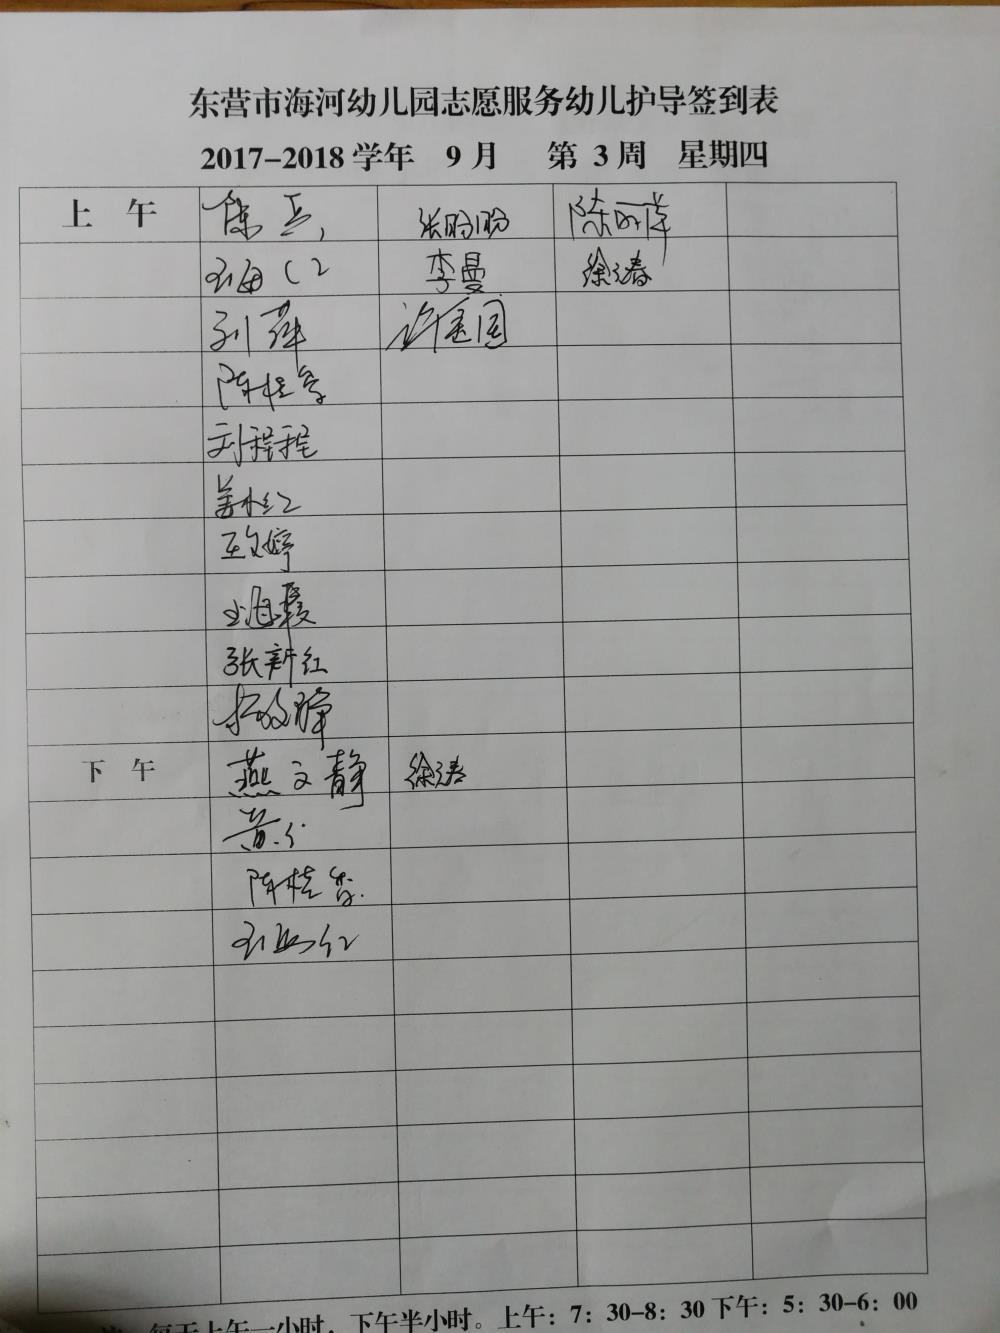 东营市海河幼儿园志愿服务幼儿护导签到表
2017-2018 学年 9 月 第 3 周 星期四
上 午 陈 张盼盼 陈
李曼 徐春
刘萍 许国
陈桂香
刘程程
姜水红
王文婷
王海霞
张新红
下 午 燕文静 徐春
黄
陈桂香
每天上午一小时，下午半小时。上午：7：30-8：30 下午：5：30-6：00